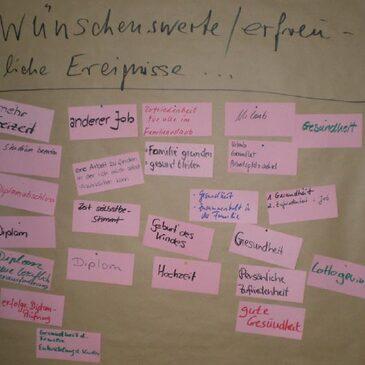 Wünschenswerte/erfreu-
liche Ereignisse ...
mehr
anderer Job
Zufriedenheit
für alle im
Familienurlaub
Urlaub
Gesundheit
Studium beenden
eine Arbeit zu finden
in der ich mich selbst
verwirklichen kann
• Familie gründen
• gesund bleiben
Urlaub
Gesundheit
Arbeitsplatzwechsel
Diplomabschluss
Zeit selbstbe-
stimmt
- Gesundheit
- Zusammenhalt in
der Familie
1. Gesundheit
2. Zufriedenheit - Job
Diplom
Geburt des
Kindes
Gesundheit
Diplom
Diplom
Hochzeit
Persönliche
Zufriedenheit
Lottogewinn
erfolgr. Diplom-
prüfung
gute
Gesundheit
Gesundheit d.
Familie
Entwicklung d. Kinder